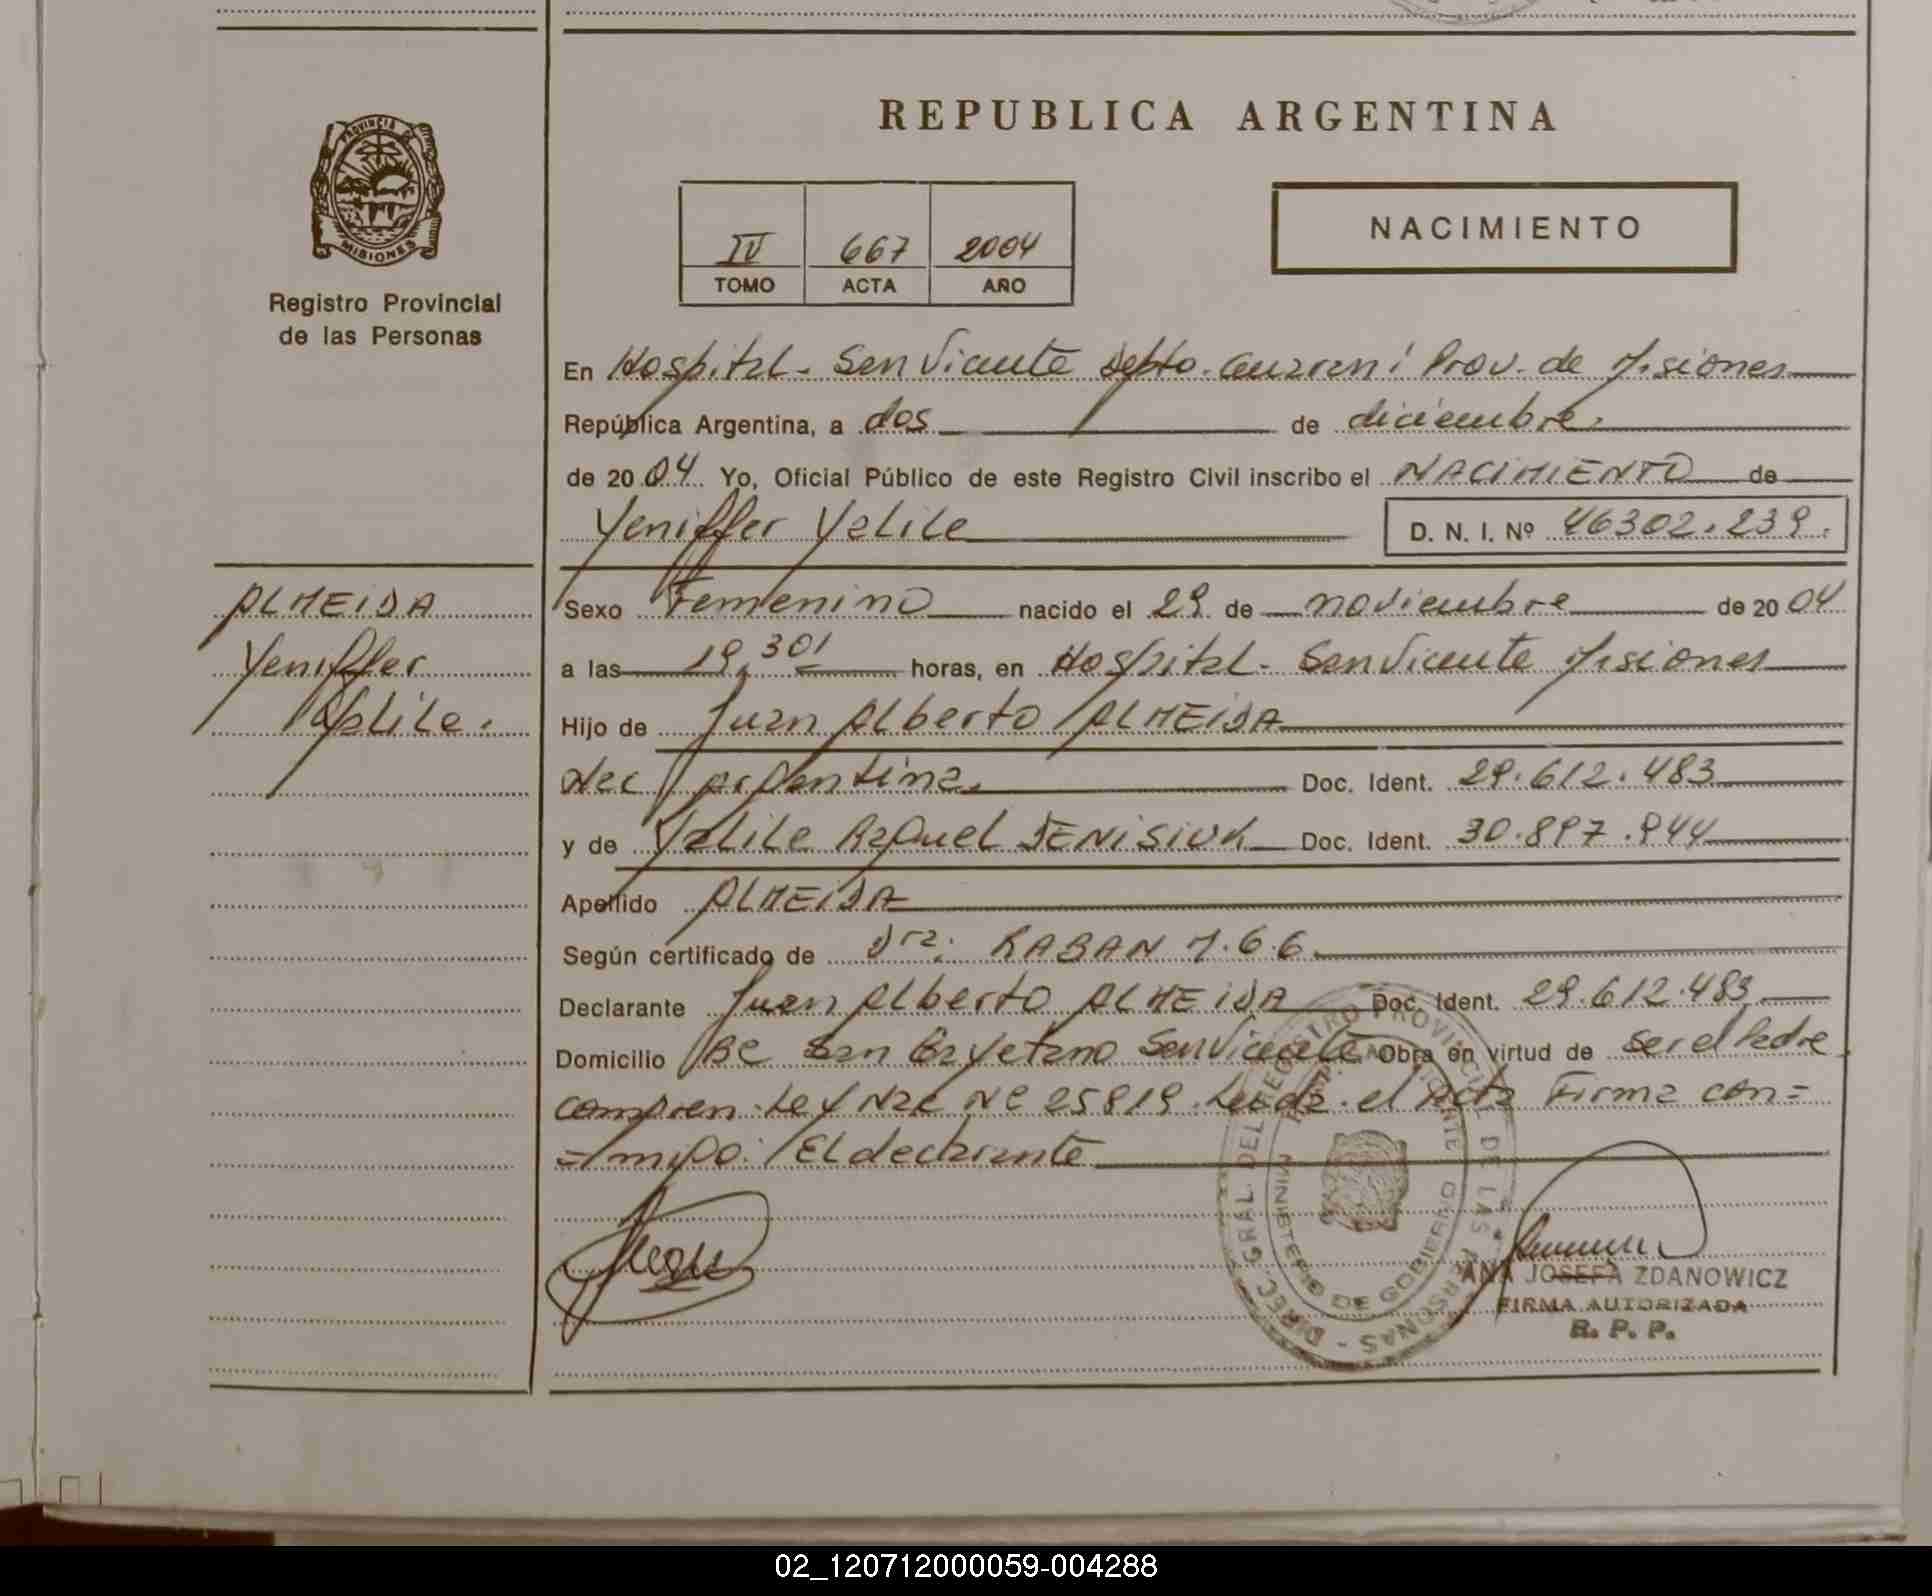 REPUBLICA ARGENTINA
PROVINCIA DE
MISIONES
Registro Provincial
de las Personas
IV 667 2004
TOMO ACTA AÑO
NACIMIENTO
En Hospital - San Vicente Depto. Guarani Prov. de Misiones
República Argentina, a dos de diciembre.
de 2004. Yo, Oficial Público de este Registro Civil inscribo el NACIMIENTO de
Yeniffer Yalile D. N. I. Nº 46302.239.
ALMEIDA
Yeniffer
Yalile.
Sexo Femenino nacido el 29 de noviembre de 2004
a las 19,30' horas, en Hospital - San Vicente Misiones
Hijo de Juan Alberto ALMEIDA
Nac argentina. Doc. Ident. 29.612.483
y de Yalile Raquel DENISIUK Doc. Ident. 30.897.944
Apellido ALMEIDA
Según certificado de Dra: RABAN M.66
Declarante Juan Alberto ALMEIDA Doc. Ident. 29.612.483
Domicilio Bº San Cayetano San Vicente Obra en virtud de ser el Padre
Ley Nac Nº 25819. Leida el Acta Firma con=
=migo: El declarante
DIREC. GRAL. DEL REGISTRO PROVINCIAL DE LAS PERSONAS -
MINISTERIO DE GOBIERNO
ANA JOSEFA ZDANOWICZ
FIRMA AUTORIZADA
R. P. P.
02_120712000059-004288